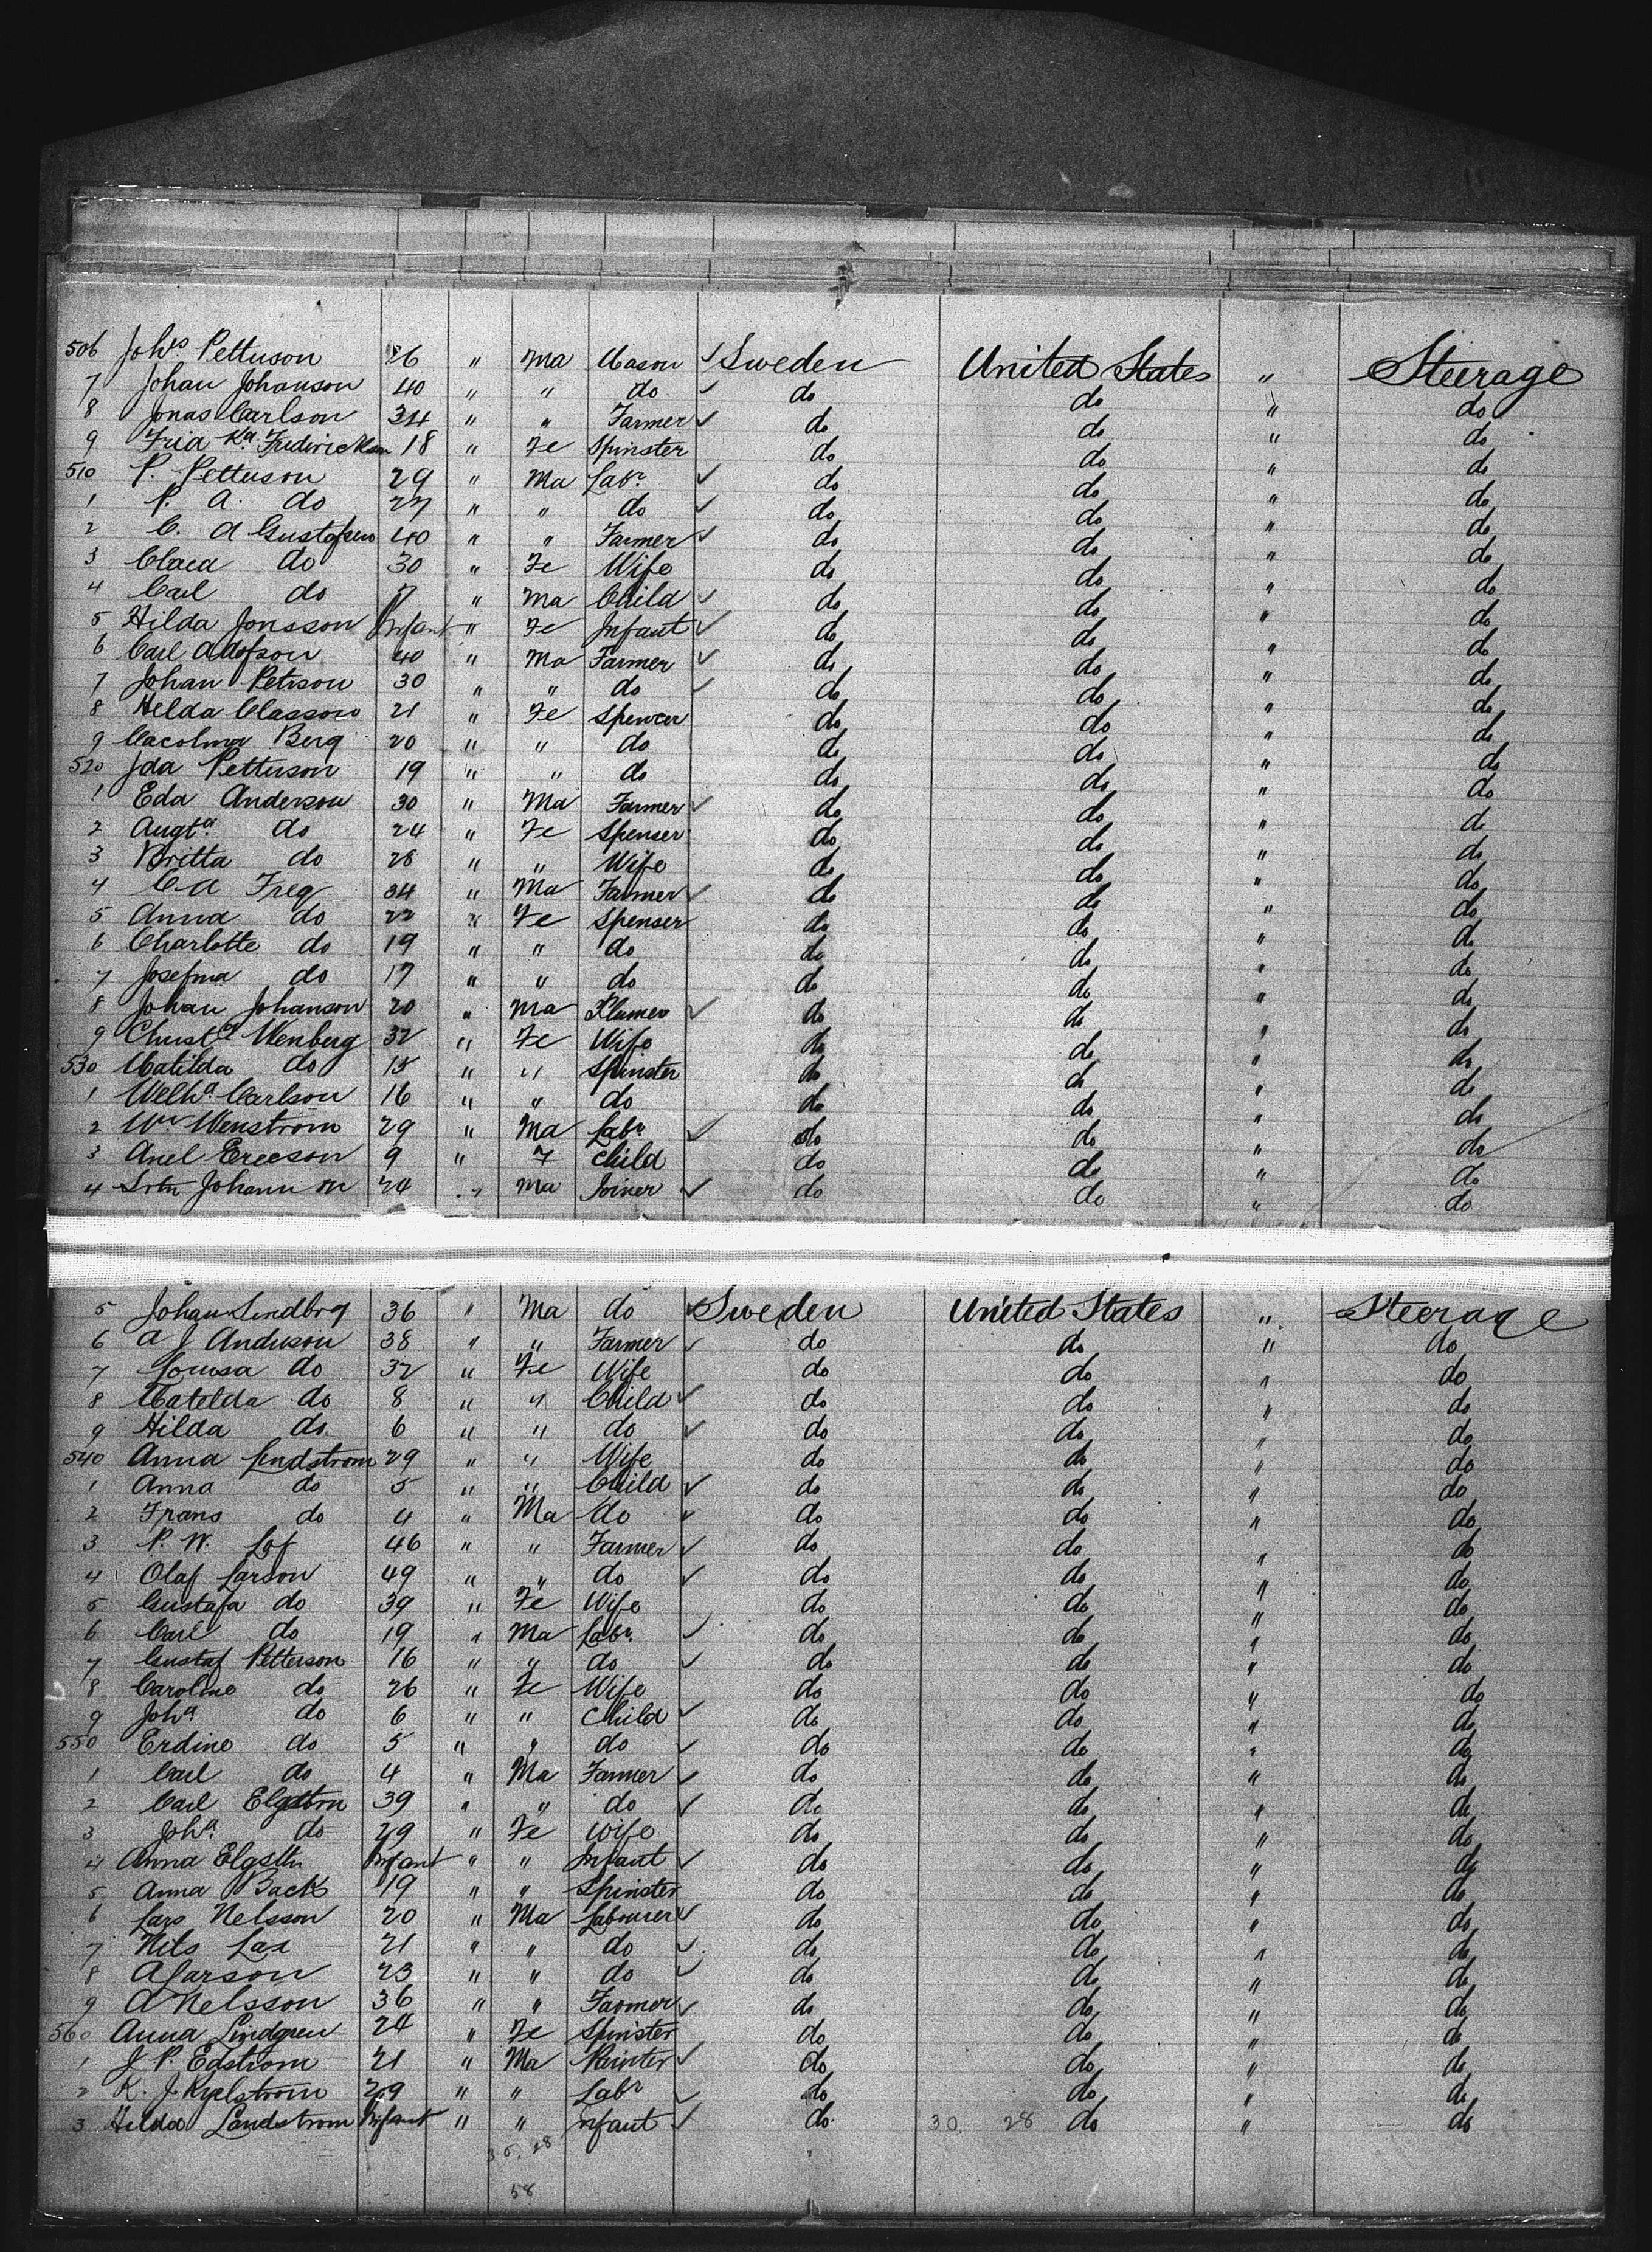 506 Johs Pettuson 26 " Ma Mason ✓ Sweden United States " Steerage
7 Johan Johanson 40 " " do ✓ do do " do
8 Jonas Carlson 34 " " Farmer ✓ do do " do
9 Frid Ka Frederickson 18 " Fe Spinster do do " do
510 P. Pettuson 29 " Ma Labr ✓ do do " do
1 P. A. do 27 " " do ✓ do do " do
2 C. A Gustafson 40 " " Farmer ✓ do do " do
3 Clara do 30 " Fe Wife do do " do
4 Carl do 7 " Ma Child ✓ do do " do
5 Hilda Jonsson Infant " Fe Infant ✓ do do " do
6 Carl Adofson 40 " Ma Farmer ✓ do do " do
7 Johan Peterson 30 " " do ✓ do do " do
8 Helda Classon 21 " Fe Spencer do do " do
9 Cacolma Berg 20 " " do do do " do
520 Ida Petterson 19 " " do do do " do
1 Eda Anderson 30 " Ma Farmer ✓ do do " do
2 Augta do 24 " Fe Spenser do do " do
3 Britta do 28 " " Wife do do " do
4 C A Freg 34 " Ma Farmer ✓ do do " do
5 Anna do 22 " Fe Spenser do do " do
6 Charlotte do 19 " " do do do " do
7 Josefina do 17 " " do do do " do
8 Johan Johanson 20 " Ma Plumer ✓ do do " do
9 Christa Wenberg 32 " Fe Wife do do " do
530 Matilda do 15 " " Spinster do do " do
1 Welha Carlson 16 " " do do do " do
2 Wm Wenstrom 29 " Ma Labr ✓ do do " do
3 Axel Ereeson 9 " F Child do do " do
4 Johann on 24 " Ma Joiner ✓ do do " do
5 Johan Lindbrg 36 " Ma do ✓ Sweden United States " Steerage
6 A J Anderson 38 " " Farmer ✓ do do " do
7 Louisa do 32 " Fe Wife do do " do
8 Matelda do 8 " " Child ✓ do do " do
9 Hilda do 6 " " do ✓ do do " do
540 Anna Lindstrom 29 " " Wife do do " do
1 Anna do 5 " " Child ✓ do do " do
2 Frans do 4 " Ma do ✓ do do " do
3 P. W. Lof 46 " " Farmer ✓ do do " do
4 Olaf Larson 49 " " do ✓ do do " do
5 Gustafa do 39 " Fe Wife do do " do
6 Carl do 19 " Ma Labr ✓ do do " do
7 Gustaf Petterson 16 " " do ✓ do do " do
8 Caroline do 26 " Fe Wife do do " do
9 Joha do 6 " " Child ✓ do do " do
550 Erdine do 5 " " do ✓ do do " do
1 Carl do 4 " Ma Farmer ✓ do do " do
2 Carl Elgstrn 39 " " do ✓ do do " do
3 Joha do 29 " Fe Wife do do " do
4 Anna Elgsttn Infant " " Infant ✓ do do " do
5 Anna Back 19 " " Spinster do do " do
6 Lars Nelsson 20 " Ma Labourer ✓ do do " do
7 Nils Lax 21 " " do ✓ do do " do
8 A Larson 23 " " do ✓ do do " do
9 A Nelsson 36 " " Farmer ✓ do do " do
560 Anna Lindgren 24 " Fe Spinster do do " do
1 J. P. Edstrom 21 " Ma Painter ✓ do do " do
2 K. J. Kyelstrom 29 " " Labr ✓ do do " do
3 Hilda Landstrom Infant " " Infant ✓ do 30. 28 do " do
30. 28
58